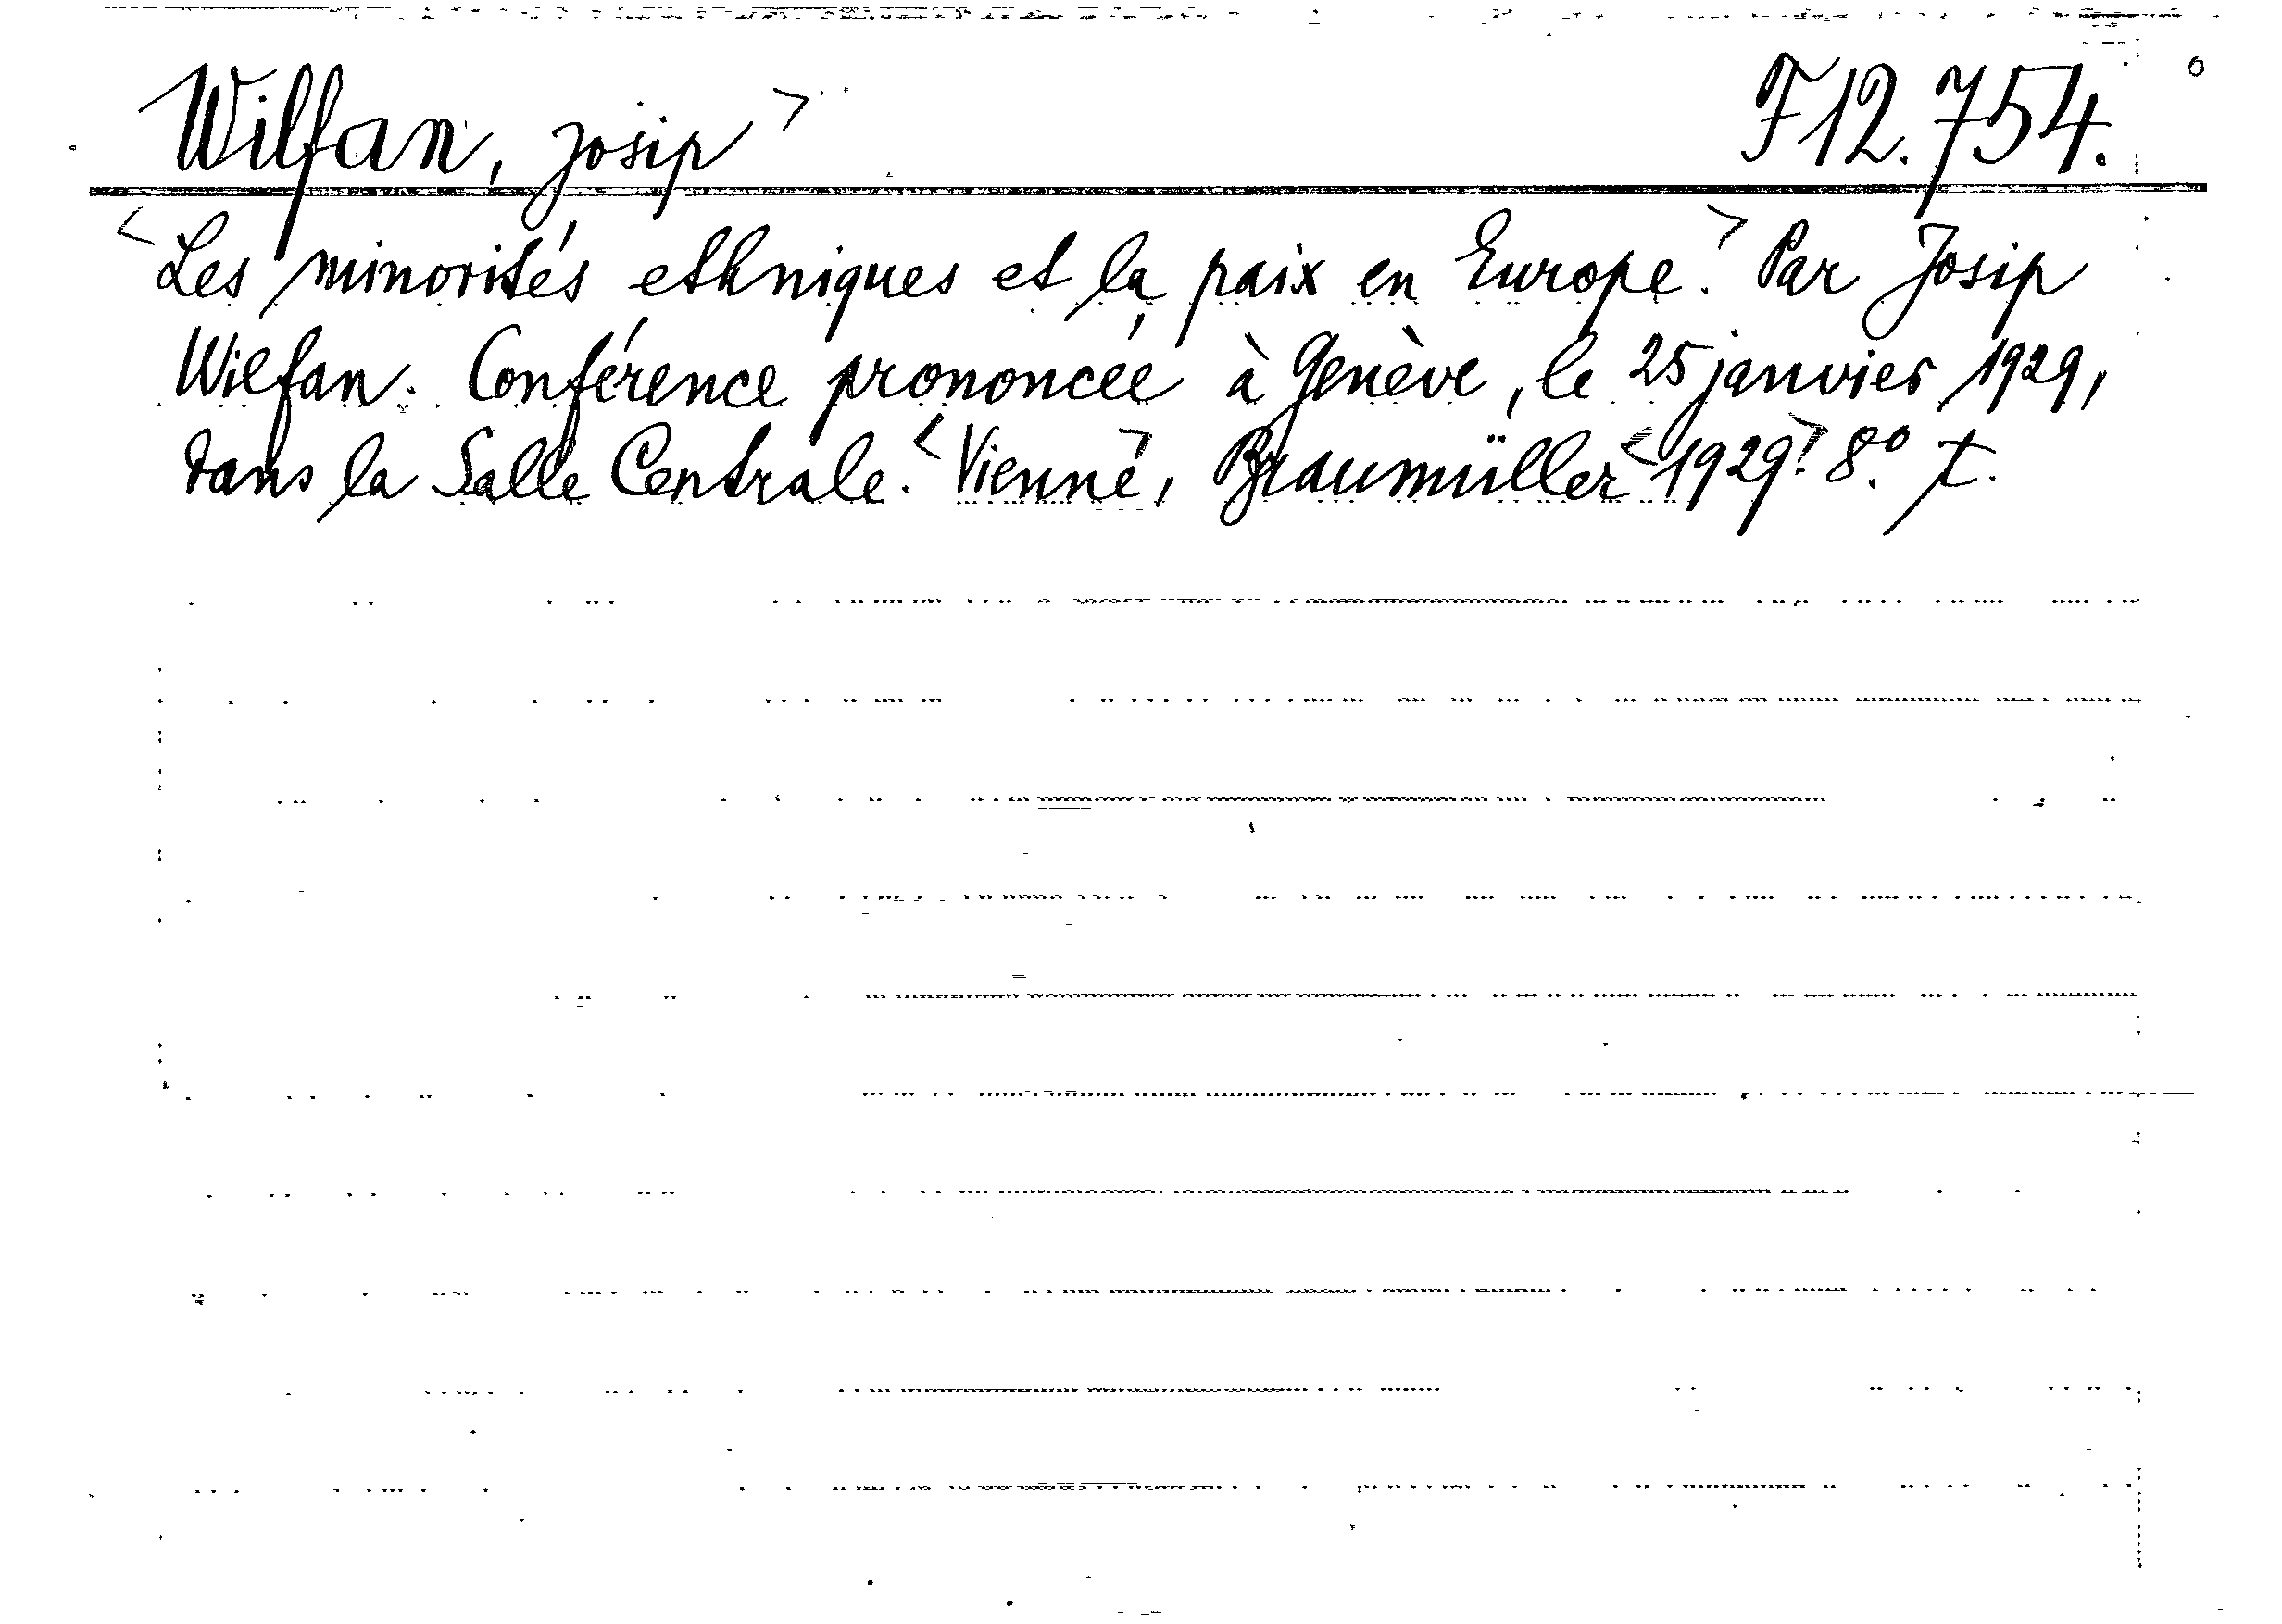 Wilfan, Josip> F12.754.
<Les minorités ethniques et la paix en Europe.> Par Josip
Wilfan. Conférence prononcée à Genève, le 25 janvier 1929,
dans la Salle Centrale. <Vienne>, Braumüller <1929.> 8° t.